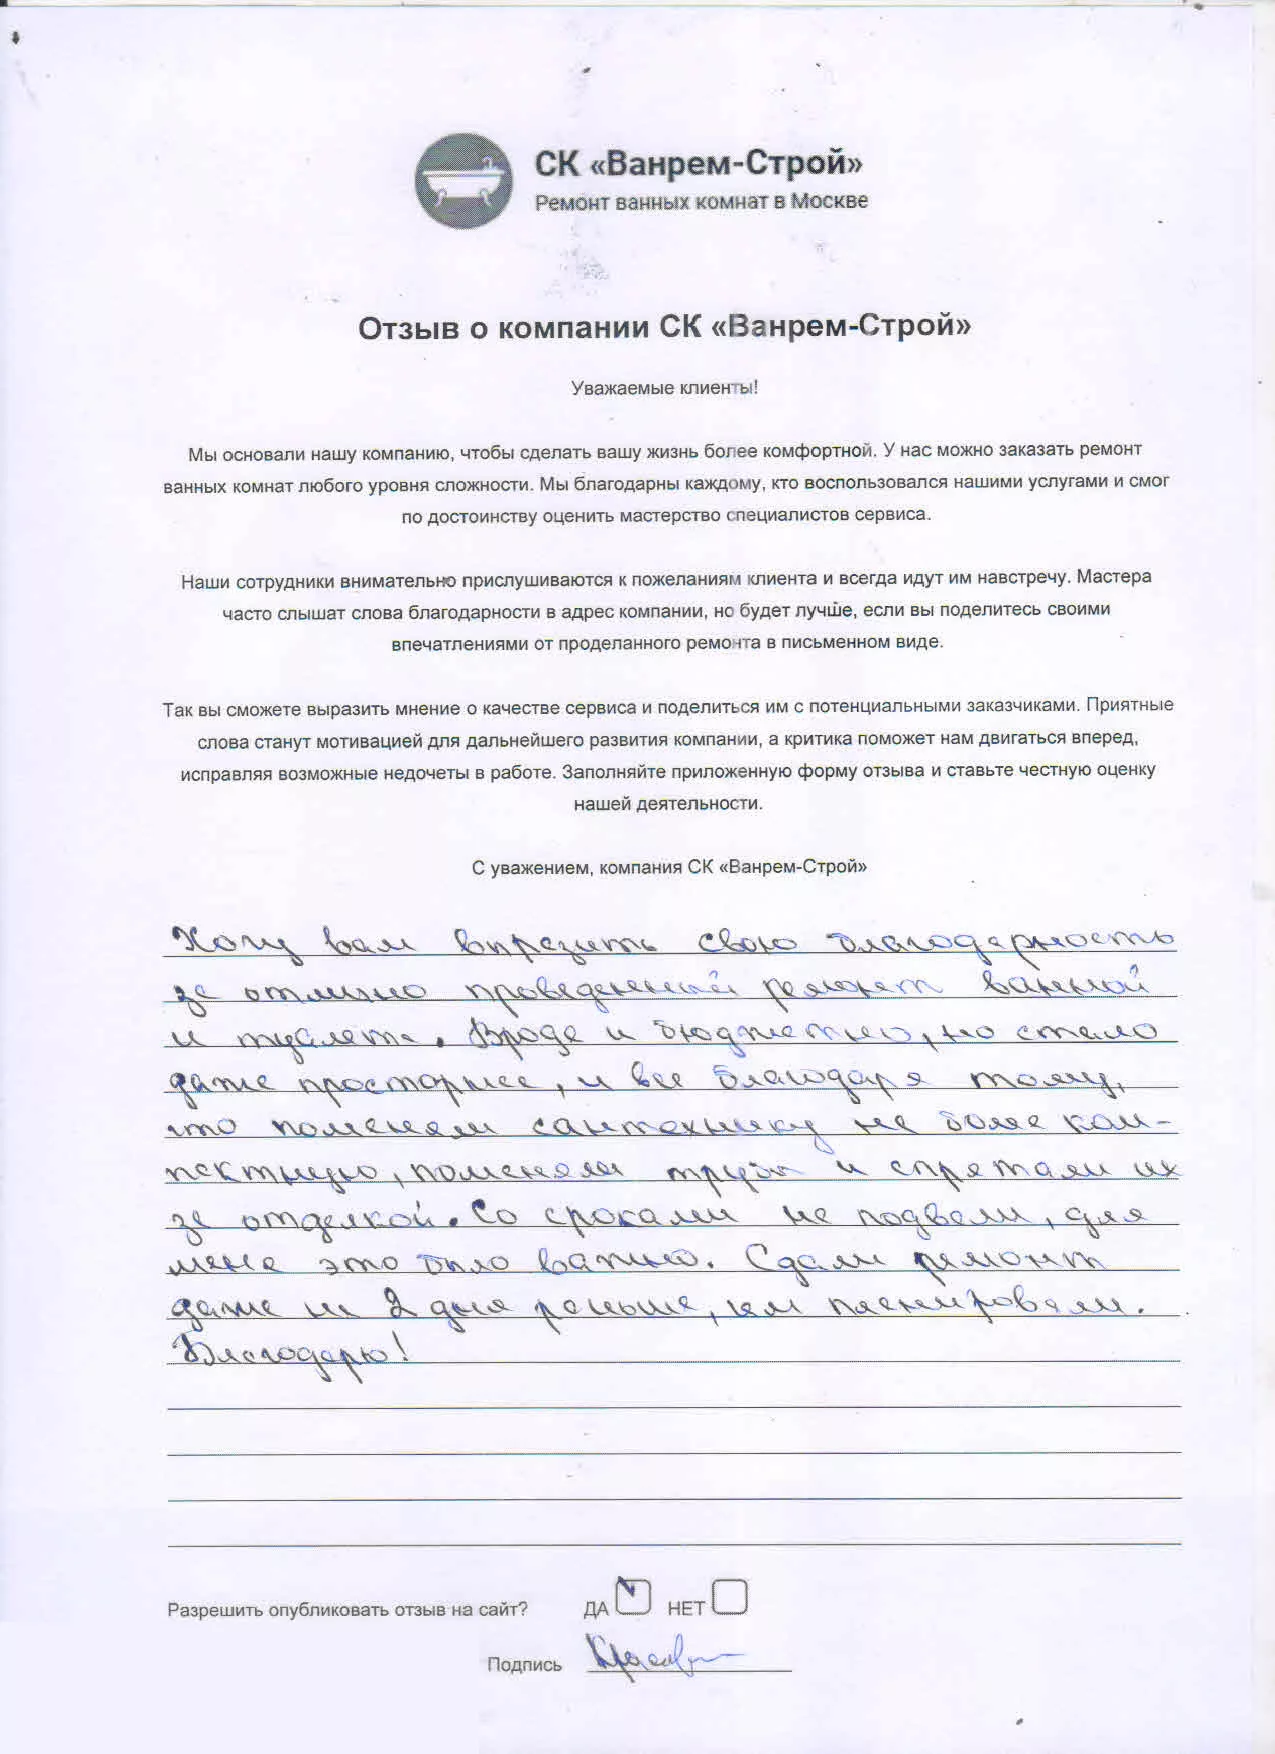 СК «Ванрем-Строй»
Ремонт ванных комнат в Москве
Отзыв о компании СК «Ванрем-Строй»
Уважаемые клиенты!
Мы основали нашу компанию, чтобы сделать вашу жизнь более комфортной. У нас можно заказать ремонт
ванных комнат любого уровня сложности. Мы благодарны каждому, кто воспользовался нашими услугами и смог
по достоинству оценить мастерство специалистов сервиса.
Наши сотрудники внимательно прислушиваются к пожеланиям клиента и всегда идут им навстречу. Мастера
часто слышат слова благодарности в адрес компании, но будет лучше, если вы поделитесь своими
впечатлениями от проделанного ремонта в письменном виде.
Так вы сможете выразить мнение о качестве сервиса и поделиться им с потенциальными заказчиками. Приятные
слова станут мотивацией для дальнейшего развития компании, а критика поможет нам двигаться вперед,
исправляя возможные недочеты в работе. Заполняйте приложенную форму отзыва и ставьте честную оценку
нашей деятельности.
С уважением, компания СК «Ванрем-Строй»
Хочу вам выразить свою благодарность
за отлично проведенный ремонт ванной
и туалета. Вроде и бюджетно, но стало
даже просторнее, и все благодаря тому,
что поменяли сантехнику на более ком-
пактную, поменяли трубы и спрятали их
за отделкой. Со сроками не подвели, для
меня это было важно. Сдали ремонт
даже на 2 дня раньше, чем планировали.
Благодарю!
Разрешить опубликовать отзыв на сайт? ДА НЕТ
Подпись